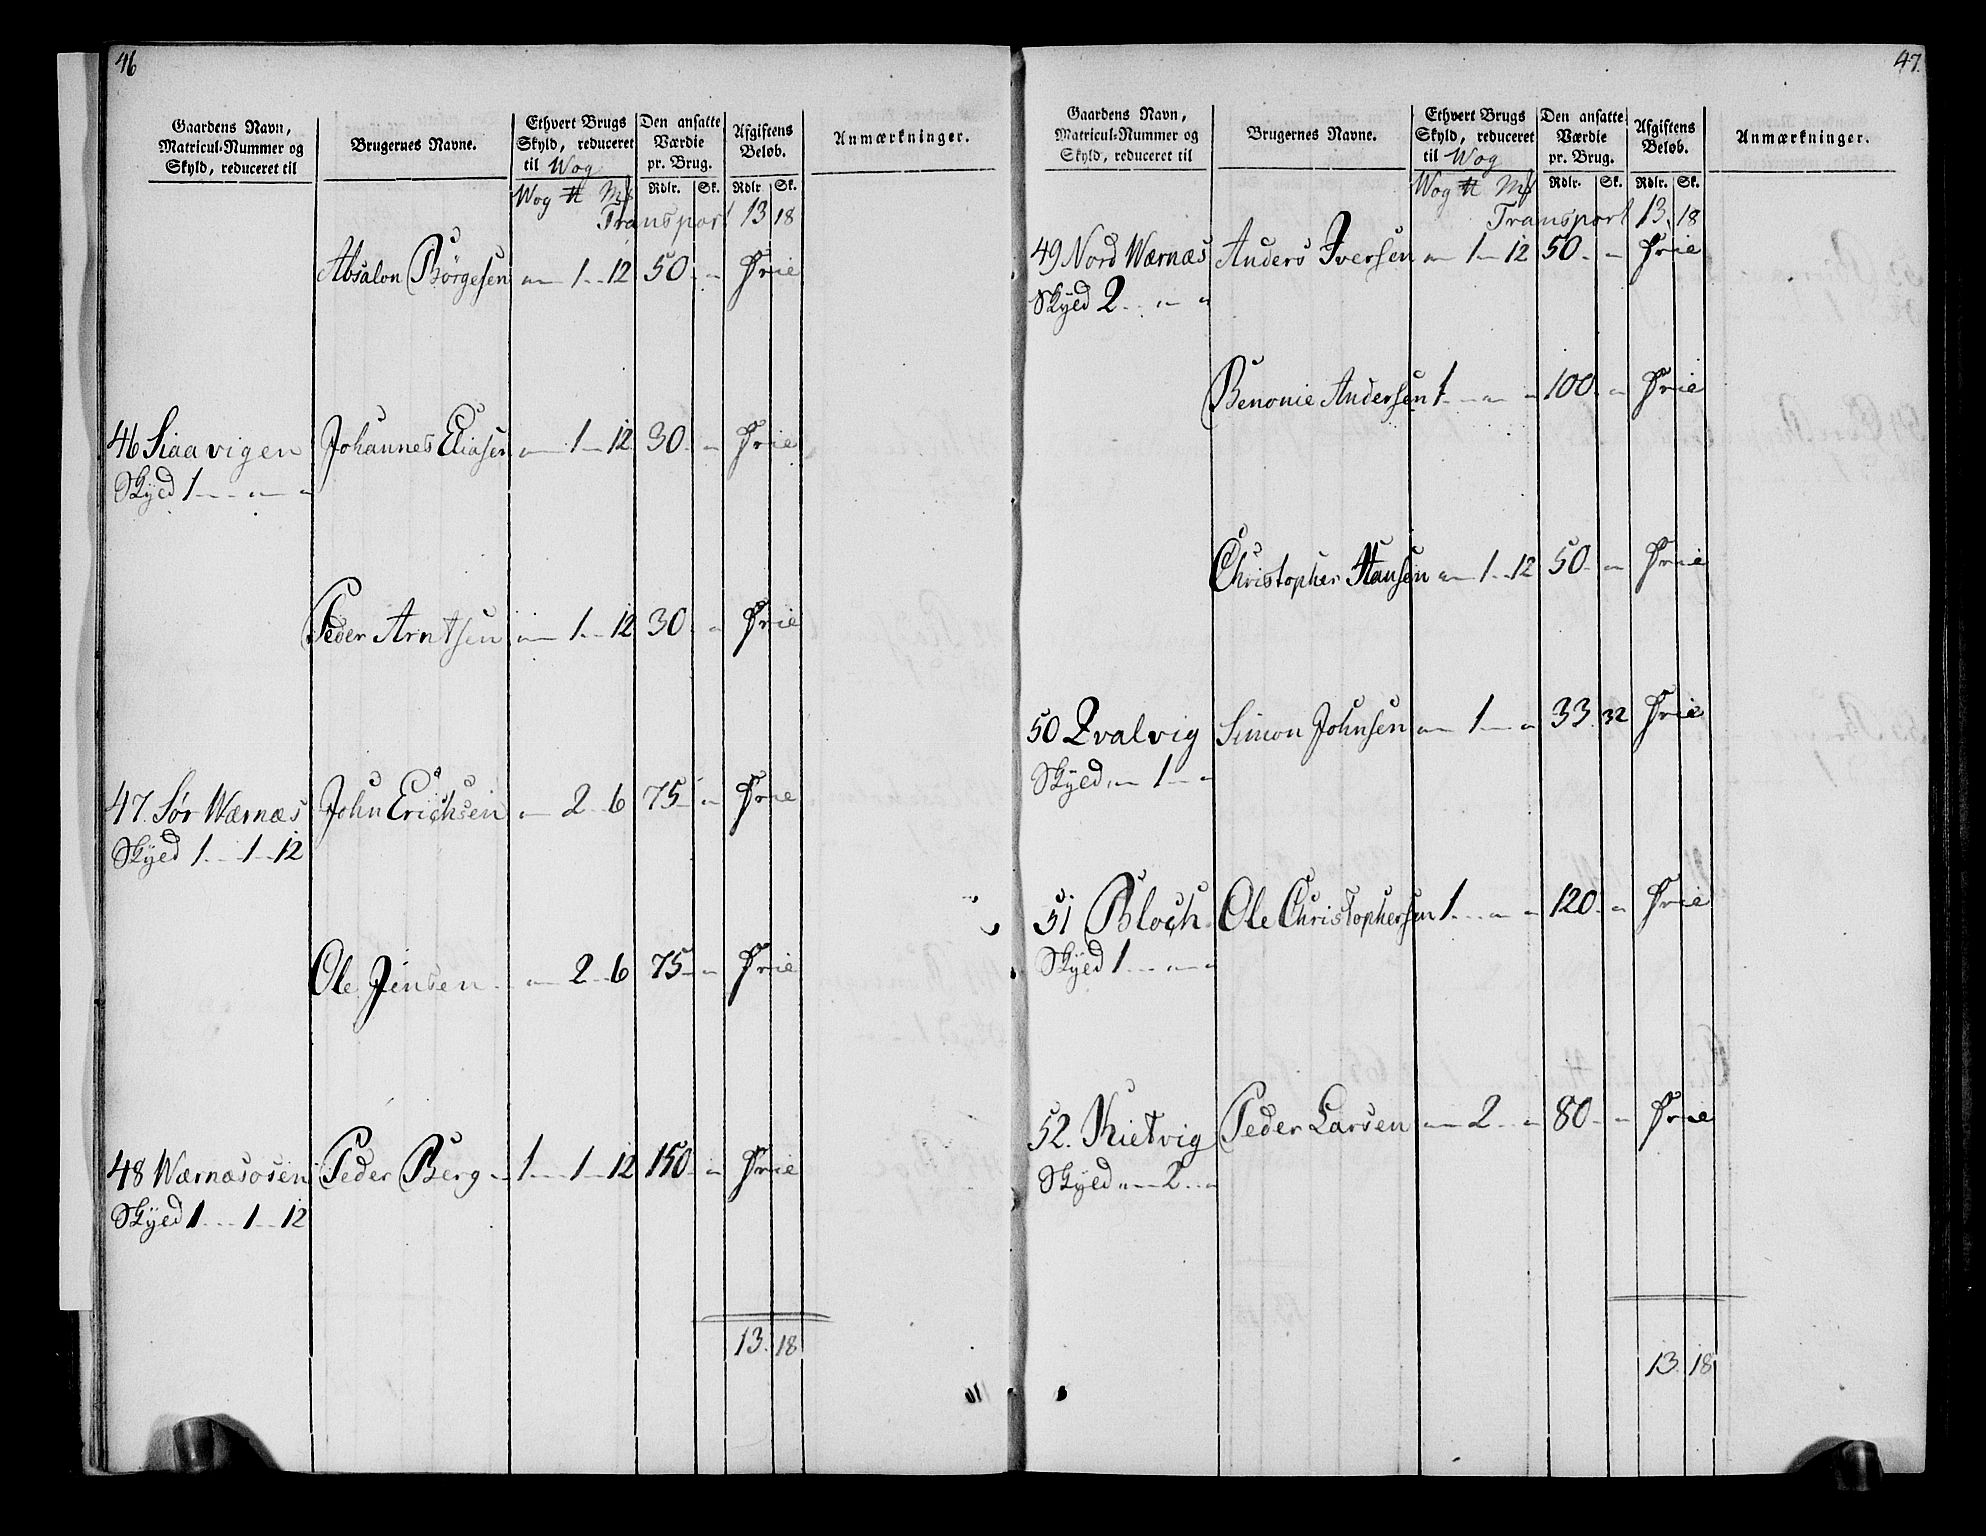 46
Gaardens Navn, Matricul-Nummer og Skyld, reduceret til
Brugernes Navne.
Ethvert Brugs Skyld, reduceret til Wog
Den ansatte Værdie pr. Brug.
Afgiftens Beløb.
Anmærkninger.
Wog ℔ Mk Rdlr. Sk. Rdlr Sk.
Transport 13 18
Absalon Börgesen „ 1 12 50 „ Frie
46 Siaavigen Johannes Eliasen „ 1 12 30 „ Frie
Skyld 1 „ „
Peder Arntsen „ 1 12 30 „ Frie
47. Sør Wærnæs John Erichsen „ 2 6 75 „ Frie
Skyld 1 1 12
Ole Jensen „ 2 6 75 „ Frie
48 Wærnæsosen Peder Berg 1 1 12 150 „ Frie
Skyld 1 1 12
13. 18
47.
Gaardens Navn, Matricul-Nummer og Skyld, reduceret til
Brugernes Navne.
Ethvert Brugs Skyld, reduceret til Wog
Den ansatte Værdie pr. Brug.
Afgiftens Beløb.
Anmærkninger.
Wog ℔ Mk Rdlr. Sk. Rdlr. Sk.
Transport 13. 18
49 Nord Wærnæs Anders Iversen „ 1 12 50 „ Frie
Skyld 2 „ „
Benonie Andersen 1 „ „ 100 „ Frie
Christopher Hansen „ 1 12 50 „ Frie
50 Qvalvig Simon Johnsen „ 1 „ 33 32 Frie
Skyld „ 1 „
51 Bloch Ole Christophersen 1 „ „ 120 „ Frie
Skyld 1 „ „
52. Kietvig Peder Larsen „ 2 „ 80 „ Frie
Skyld „ 2 „
13. 18